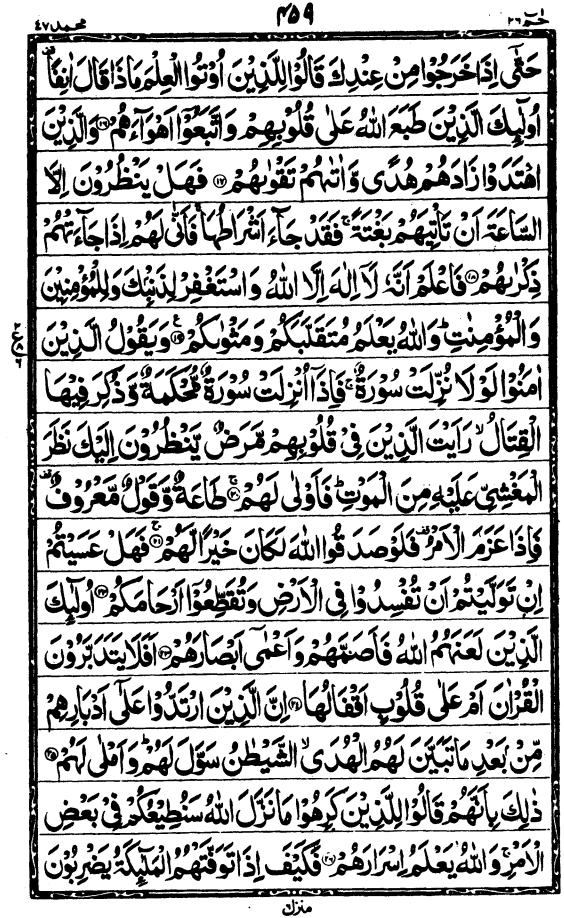 حٰمٓ ٢٦
٤٥٩
محمد ٤٧
حَتّٰۤى اِذَا خَرَجُوْا مِنْ عِنْدِكَ قَالُوْا لِلَّذِيْنَ اُوْتُوا الْعِلْمَ مَاذَا قَالَ اٰنِفًا
اُولٰٓئِكَ الَّذِيْنَ طَبَعَ اللّٰهُ عَلٰى قُلُوْبِهِمْ وَاتَّبَعُوْۤا اَهْوَآءَهُمْ ﴿١٦﴾ وَالَّذِيْنَ
اهْتَدَوْا زَادَهُمْ هُدًى وَّاٰتٰىهُمْ تَقْوٰىهُمْ ﴿١٧﴾ فَهَلْ يَنْظُرُوْنَ اِلَّا
السَّاعَةَ اَنْ تَاْتِيَهُمْ بَغْتَةً ۚ فَقَدْ جَآءَ اَشْرَاطُهَا ۚ فَاَنّٰى لَهُمْ اِذَا جَآءَتْهُمْ
ذِكْرٰىهُمْ ﴿١٨﴾ فَاعْلَمْ اَنَّهٗ لَاۤ اِلٰهَ اِلَّا اللّٰهُ وَاسْتَغْفِرْ لِذَنْۢبِكَ وَلِلْمُؤْمِنِيْنَ
وَالْمُؤْمِنٰتِ ؕ وَاللّٰهُ يَعْلَمُ مُتَقَلَّبَكُمْ وَمَثْوٰىكُمْ ﴿١٩﴾ وَيَقُوْلُ الَّذِيْنَ
اٰمَنُوْا لَوْلَا نُزِّلَتْ سُوْرَةٌ ۚ فَاِذَاۤ اُنْزِلَتْ سُوْرَةٌ مُّحْكَمَةٌ وَّذُكِرَ فِيْهَا
الْقِتَالُ ۙ رَاَيْتَ الَّذِيْنَ فِيْ قُلُوْبِهِمْ مَّرَضٌ يَّنْظُرُوْنَ اِلَيْكَ نَظَرَ
الْمَغْشِيِّ عَلَيْهِ مِنَ الْمَوْتِ ؕ فَاَوْلٰى لَهُمْ ﴿٢٠﴾ طَاعَةٌ وَّقَوْلٌ مَّعْرُوْفٌ
فَاِذَا عَزَمَ الْاَمْرُ فَلَوْ صَدَقُوا اللّٰهَ لَكَانَ خَيْرًا لَّهُمْ ﴿٢١﴾ فَهَلْ عَسَيْتُمْ
اِنْ تَوَلَّيْتُمْ اَنْ تُفْسِدُوْا فِي الْاَرْضِ وَتُقَطِّعُوْۤا اَرْحَامَكُمْ ﴿٢٢﴾ اُولٰٓئِكَ
الَّذِيْنَ لَعَنَهُمُ اللّٰهُ فَاَصَمَّهُمْ وَاَعْمٰۤى اَبْصَارَهُمْ ﴿٢٣﴾ اَفَلَا يَتَدَبَّرُوْنَ
الْقُرْاٰنَ اَمْ عَلٰى قُلُوْبٍ اَقْفَالُهَا ﴿٢٤﴾ اِنَّ الَّذِيْنَ ارْتَدُّوْا عَلٰۤى اَدْبَارِهِمْ
مِّنْۢ بَعْدِ مَا تَبَيَّنَ لَهُمُ الْهُدَى ۙ الشَّيْطٰنُ سَوَّلَ لَهُمْ ؕ وَاَمْلٰى لَهُمْ ﴿٢٥﴾
ذٰلِكَ بِاَنَّهُمْ قَالُوْا لِلَّذِيْنَ كَرِهُوْا مَا نَزَّلَ اللّٰهُ سَنُطِيْعُكُمْ فِيْ بَعْضِ
الْاَمْرِ ۚ وَاللّٰهُ يَعْلَمُ اِسْرَارَهُمْ ﴿٢٦﴾ فَكَيْفَ اِذَا تَوَفَّتْهُمُ الْمَلٰٓئِكَةُ يَضْرِبُوْنَ